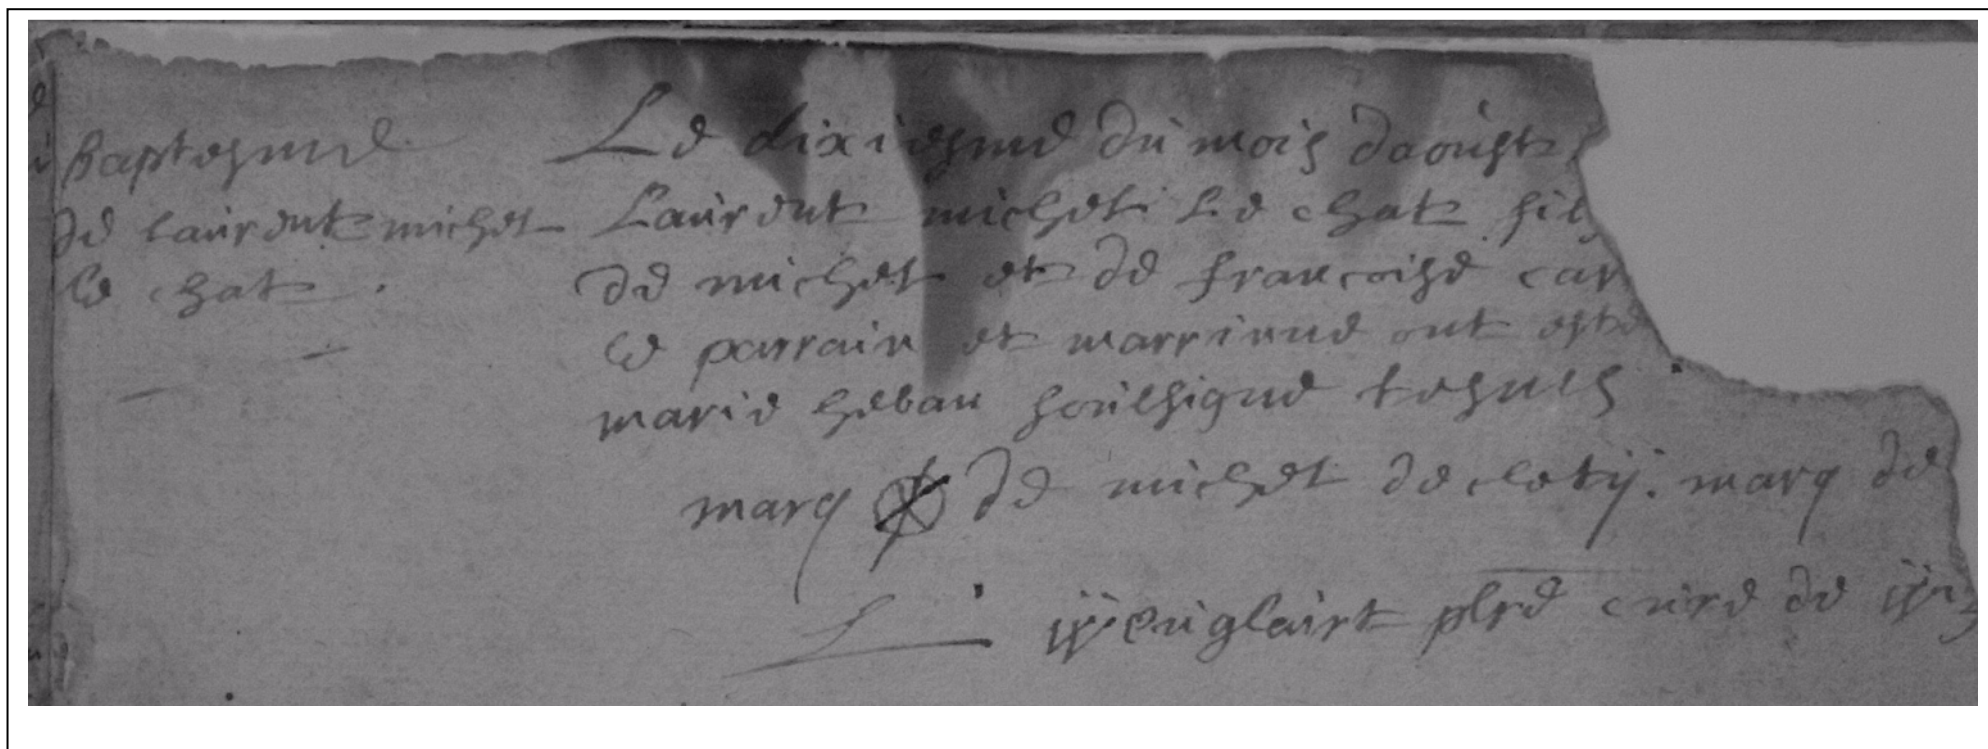 baptesme
de laurent michel
le chat .
Le dixiesme du mois daoust
Laurent michel Le chat fils
de michel et de francoise car
le parrain et marrinne ont esté
marie heban soussigne tesmes
marq de michel de clety. marq de
curé de